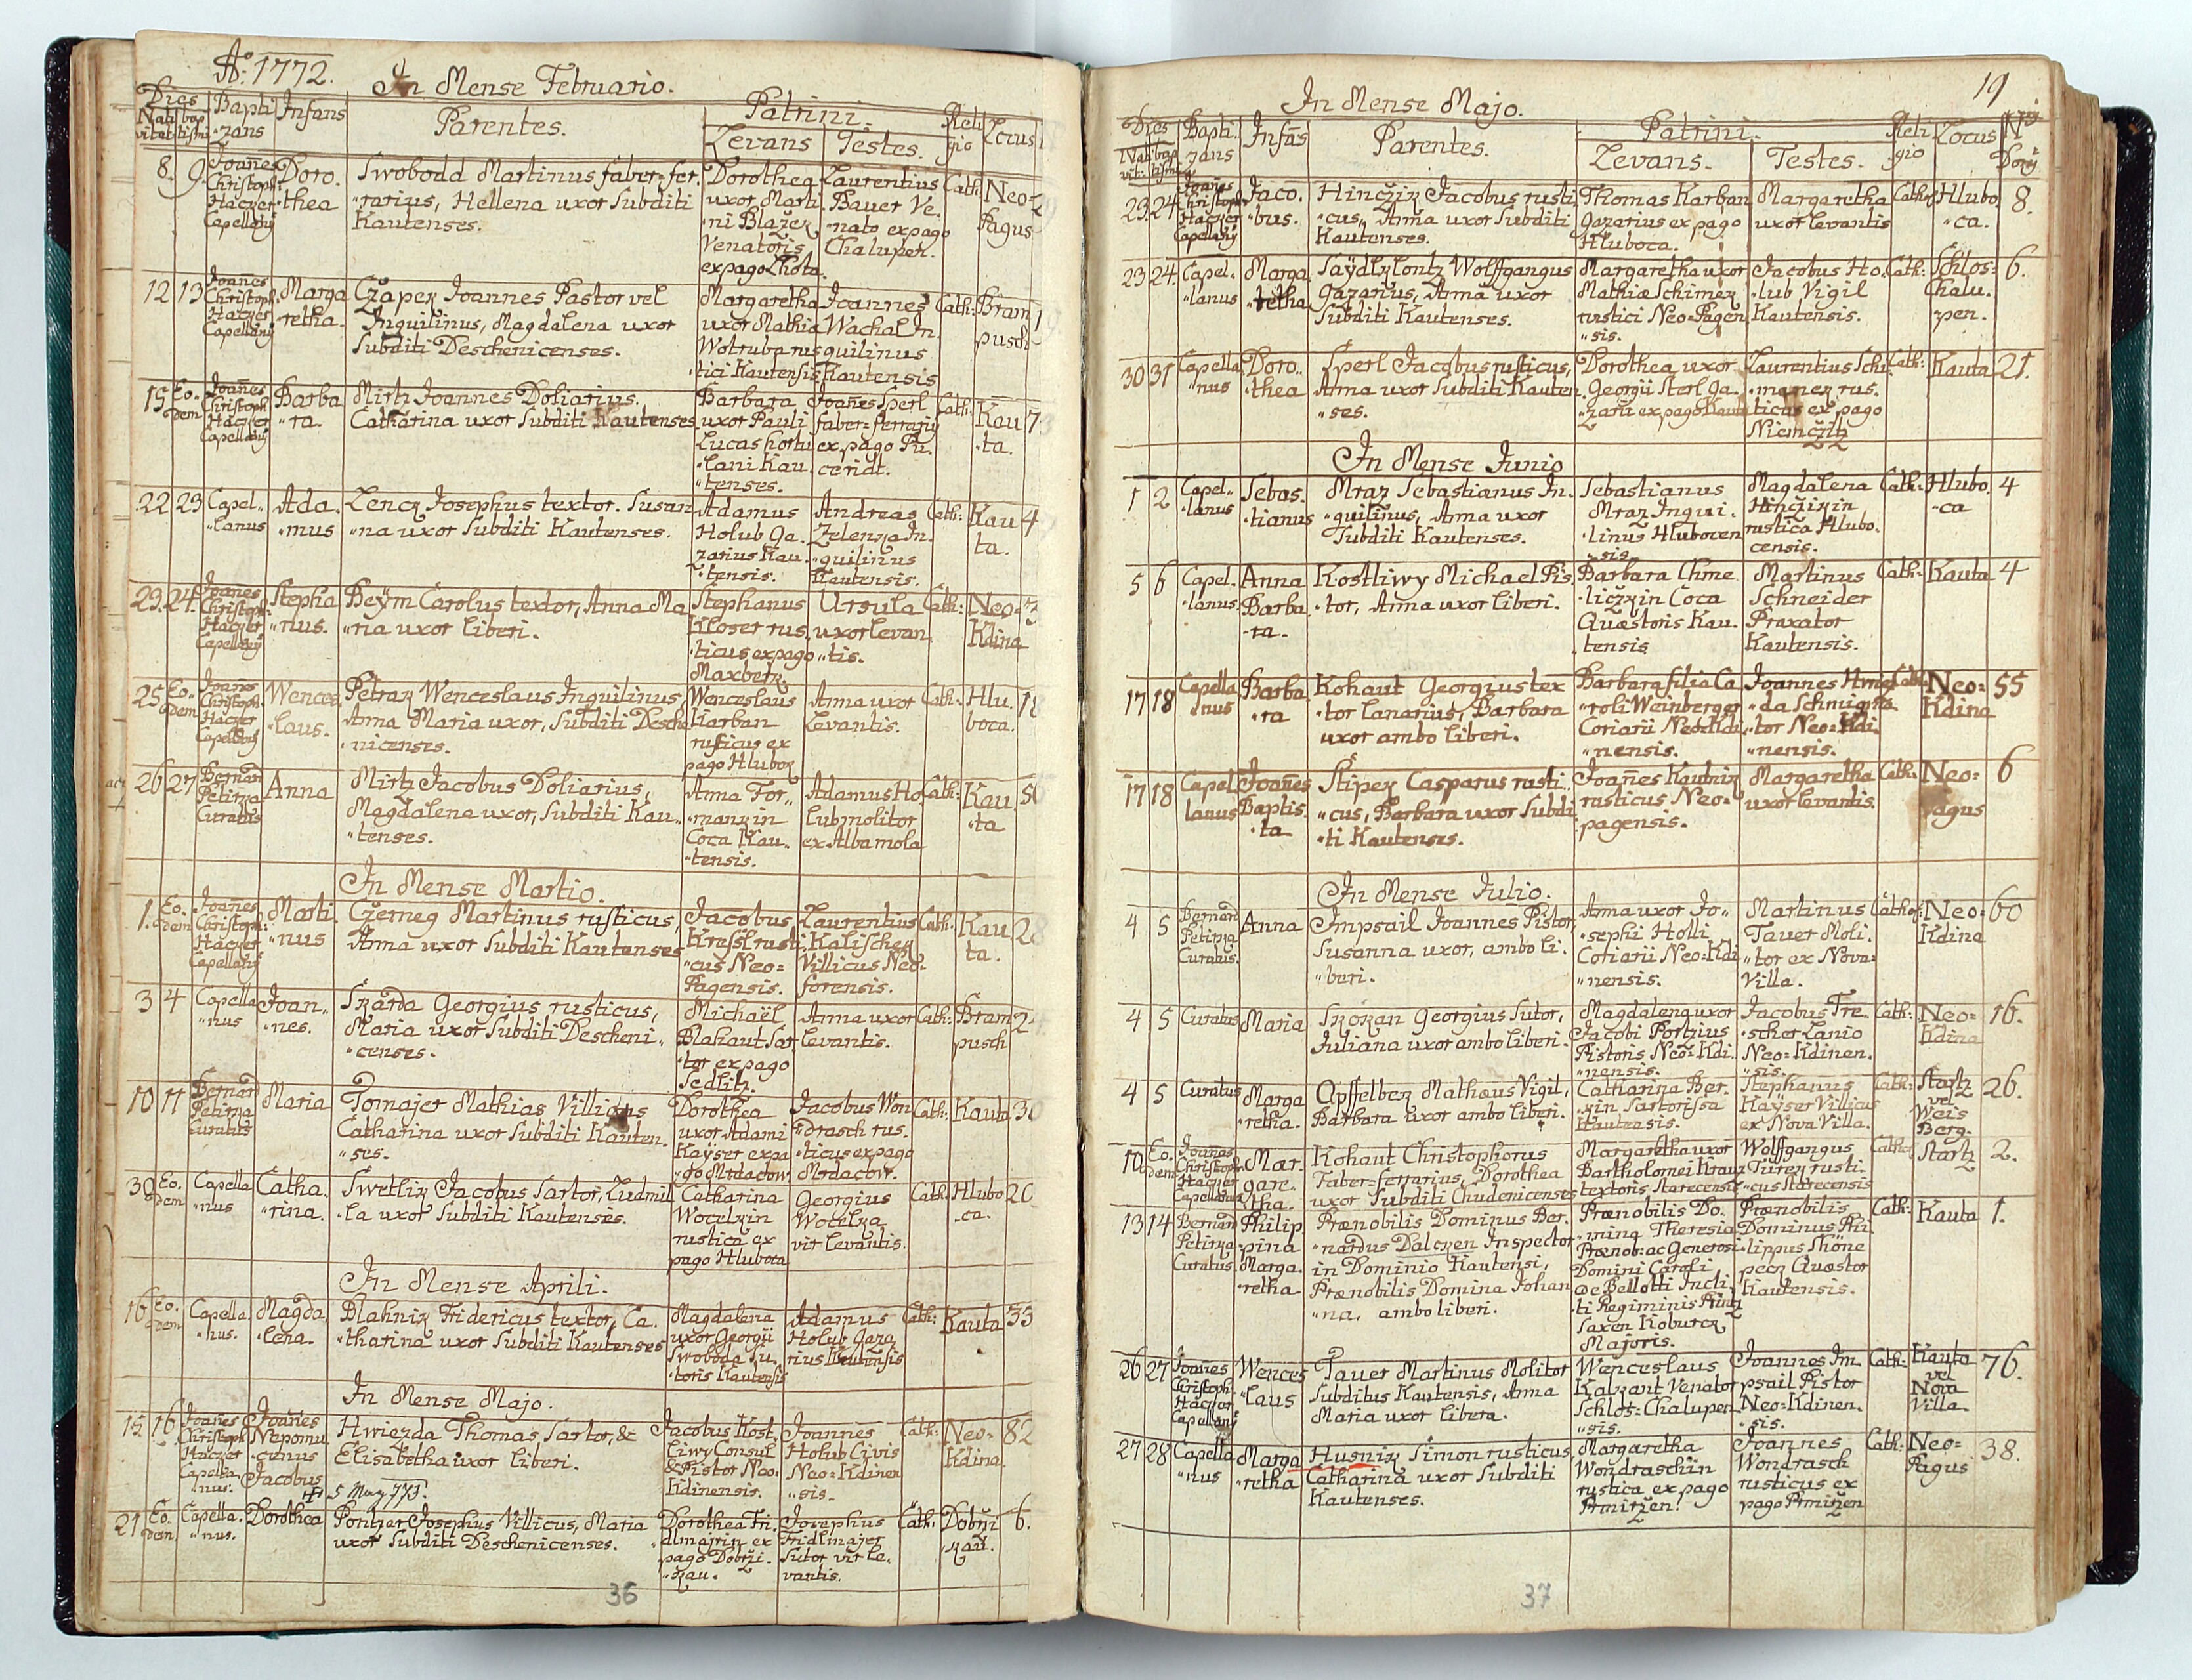 Aº: 1772. In Mense Februario.
Dies
Nati vitat: bap tismi
Bapti "zans
Infans
Parentes.
Patrini.
Levans Testes.
Reli gio
Locus
8. 9. Joañes Christoph: Haczer Capellanÿ
Doro. "thea
Swoboda Martinus faber=fer.
"rarius, Hellena uxor Subditi
Kautenses.
Dorothea
uxor Marti
"ni Blažek
Venatoris
ex pago Lhota.
Laurentius
Bauer Ve.
"nato ex pago
Chalupen.
Cath:
Neo= Pagus
12 13 Joañes Christoph. Haczer Capellanÿ
Marga retha.
Czapek Joannes Pastor vel
Inquilinus, Magdalena uxor
Subditi Deschenicenses.
Margaretha
uxor Mathia
Wotruba rus
"tici Kautensis
Joannes
Wachal In.
quilinus
Kautensis
Cath:
Bram pusch
15 Eo.. dem Joañes Christoph Haczer Capellanÿ
Barba "ra.
Mirtz Joannes Doliarius.
Catharina uxor Subditi Kautenses.
Barbara
uxor Pauli
Lucas hortu
"lani Kau.
"tenses.
Joañes Sperl
faber=ferrariÿ
ex pago Pu.
ceridt.
Cath:
Kau ta.
7
22 23 Capel.. "lanus
Ada. "mus
Lenck Josephus textor. Susan
"na uxor Subditi Kautenses.
Adamus
Holub Ga.
zarius Kau.
"tensis.
Andreas
Zelenka In.
"quilinus
Kautensis.
Cath:
Kau ta.
4
23. 24. Joañes Christoph: Haczer Capellanÿ
Stepha "nus.
Beÿm Carolus textor, Anna Ma
"ria uxor liberi.
Stephanus
Kloser rus.
"ticus ex pago
Maxberk.
Ursula
uxor levan
"tis.
Cath:
Neo= Kdina
25 Eo.. dem Joañes Christoph: Haczer Capellanÿ
Wences "laus.
Petrak Wenceslaus Inquilinus,
Anna Maria uxor, Subditi Desche
"nicenses.
Wenceslaus
Karban
rusticus ex
pago Hlubok
Anna uxor
Levantis.
Cath:
Hlu. boca.
18
26 27 Bernard Petirka Curatus
Anna
Mirtz Jacobus Doliarius,
Magdalena uxor, Subditi Kau..
"tenses.
Anna For..
"mankin
Coca Kau..
"tensis.
Adamus Ho
lub molitor
ex Alba mola
Cath:
Kau. "ta
In Mense Martio.
1. Eo.. dem Joañes Christoph: Haczer Capellanÿ
Marti "nus
Czerneg Martinus rusticus,
Anna uxor Subditi Kautenses
Jacobus
Kressl rusti
"cus Neo=
Pagensis.
Laurentius
Kalischek
Villicus Neo=
forensis.
Cath:
Kau ta.
28
3 4 Capella "nus
Joan.. "nes.
Skarda Georgius rusticus,
Maria uxor Subditi Descheni..
"censes.
Michaël
Blahaut Sar
"tor ex pago
Sedlitz.
Anna uxor
levantis.
Cath:
Bram pusch
10 11 Bernard Petirka Curatus
Maria
Tomajer Mathias Villicus
Catharina uxor Subditi Kauten.
"ses.
Dorothea
uxor Adami
Kaÿser ex pa
"go Mrdacow
Jacobus Won
"drasch rus.
"ticus ex pago
Mrdacow.
Cath:
Kauta
30
30 Eo. dem Capella "nus
Catha. "rina.
Swetlik Jacobus Sartor, Ludmil
"la uxor Subditi Kautenses.
Catharina
Wocelkin
rustica ex
pago Hluboca
Georgius
Wocelka
vir levantis.
Cath:
Hlubo "ca.
In Mense Aprili.
16 Eo. dem Capella. "nus.
Magda. "lena.
Blahnik Fridericus textor, Ca.
"tharina uxor Subditi Kautenses
Magdalena
uxor Georgÿ
Swoboda Su.
"toris Kautensis
Adamus
Holub Gaza
rius Kautensis
Cath:
Kauta
In Mense Majo.
15 16 Joañes Christoph Haczer Capella. "nus.
Joañes Nepomu "cenus Jacobus
Hwiezda Thomas, Sartor, &
Elisabetha uxor liberi.
5 May 773.
Jacobus Kost.
liwy Consul
& Pistor Neo.
Kdinensis.
Joannes
Holub Civis
Neo=Kdinen
"sis.
Cath:
Neo= Kdina.
82
21 Eo. dem Capella. "nus.
Dorothea
Poritzer Josephus Villicus, Maria
uxor Subditi Deschenicenses.
Dorothea Fri.
dlmajrin ex
pago Dobrži.
"kau.
Josephus
Fridlmajer
Sutor vir le.
vantis.
Cath:
Dobrži "kau.
6.
36
19
In Mense Majo.
Dies
Nati vit: bap tismi
Bapti. zans
Infañs
Parentes.
Patrini.
Levans. Testes.
Reli gio
Locus
Nº Domÿ
23. 24. Joañes Christoph Haczer Capellanÿ
Jaco. "bus.
Hinčzik Jacobus rusti
"cus, Anna uxor Subditi
Kautenses.
Thomas Karban
Gazarius ex pago
Hluboca.
Margaretha
uxor levantis
Cath:
Hlubo "ca.
8.
23 24. Capel.. "lanus
Marga "retha
Saÿdlzlontz Wolffgangus
Gazarius, Anna uxor
Subditi Kautenses.
Margaretha uxor
Mathiæ Schimek
rustici Neo=Pagen
"sis.
Jacobus Ho.
"lub Vigil
Kautensis.
Cath:
Schlos= Chalu. "pen.
6.
30 31 Capella "nus
Doro.. "thea
Sperl Jacobus rusticus,
Anna uxor Subditi Kauten
"ses.
Dorothea uxor
Georgii Sterl Ga.
"zarii ex pago Kauta
Laurentius Schi
"manek rus.
ticus ex pago
Niemčzitz
Cath:
Kauta
21.
In Mense Junio
1 2 Capel.. "lanus
Sebas. "tianus
Mraz Sebastianus In.
"quilinus, Anna uxor
Subditi Kautenses.
Sebastianus
Mraz Inqui.
"linus Hlubocen
"sis.
Magdalena
Hinčzikin
rustica Hlubo.
censis.
Cath:
Hlubo. "ca
4
5 6 Capel. "lanus
Anna Barba "ra.
Kostliwy Michael Pis
"tor, Anna uxor liberi.
Barbara Chme
"ličzkin Coca
Quæstoris Kau.
"tensis
Martinus
Schneider
Praxator
Kautensis.
Cath:
Kauta
4
17 18 Capella "nus
Barba "ra
Kohaut Georgius tex
"tor lanarius, Barbara
uxor ambo liberi.
Barbara filia Ca
"roli Weinberger
Coriarii Neo=Kdi
"nensis.
Joannes
"tor Neo=Kdi.
"nensis.
Cath:
Neo= Kdina
55
17 18 Capel lanus
Joañes Baptis. "ta
Stipek Casparus rusti..
"cus, Barbara uxor Subdi
"ti Kautenses.
Joañes Kautnik
rusticus Neo=
pagensis.
Margaretha
uxor levantis.
Cath:
Neo= Pagus
6
In Mense Julio.
4 5 Bernard Petirka Curatus.
Anna
Impsail Joannes Pistor,
Susanna uxor, ambo li.
"beri.
Anna uxor Jo..
"sephi Holli
Coriarii Neo=Kdi
"nensis.
Martinus
Tauer Moli.
"tor ex Nova=
Villa.
Cathol:
Neo= Kdina
60
4 5 Curatus
Maria
Skokan Georgius Sutor,
Juliana uxor ambo liberi.
Magdalena uxor
Jacobi Portzius
Pistoris Neo=Kdi.
"nensis.
Jacobus Tre
"scher Lanio
Neo=Kdinen.
"sis.
Cath:
Neo= Kdina
16.
4 5 Curatus
Marga "retha.
Opffelbek Mathæus Vigil,
Barbara uxor ambo liberi.
Catharina Ber.
"kin Sartorissa
Kautensis.
Stephanus
Kaÿser Villicus
ex Nova Villa.
Cath:
Startz vel Weis Berg.
26.
10 Eo. dem Joañes Christoph Haczer Capellanus
Mar. gare. "tha.
Kohaut Christophorus
Faber=ferrarius, Dorothea
uxor Subditi Chudenicenses
Margaretha uxor
Bartholomei Kraus
textoris Starecensis
Wolffgangus
Türek rusti
"cus Starecensis
Cathol
Startz
2.
13 14 Bernard Petirka Curatus
Philip "pina Marga. "retha
Prænobilis Dominus Ber.
"nardus Dalczen Inspector
in Dominio Kautensi,
Prænobilis Domina Johan
"na, ambo liberi.
Prænobilis Do.
"mina Theresia
Prænob: ac Generosi
Domini Caroli
de Bellotti Incli.
ti Regiminis Printz
Saxen Koburck
Majoris.
Prænobilis
Dominus Phi
"lippus Shöne
peck Quæstor
Kautensis.
Cath:
Kauta
1.
26 27 Joañes Christoph: Haczer Capellanÿ
Wences "laus
Tauer Martinus Molitor
Subditus Kautensis, Anna
Maria uxor libera.
Wenceslaus
Kalzant Venator
Schlos=Chalupen
"sis.
Joannes Im
psail Pistor
Neo=Kdinen.
"sis.
Cath:
Kauta vel Nova Villa.
76.
27 28 Capella "nus
Marga "retha
Husnik Simon rusticus
Catharina uxor Subditi
Kautenses.
Margaretha
Wondraschin
rustica ex pago
Prmiržen.
Joannes
Wondrasch
rusticus ex
pago Prmiržen
Cath:
Neo= Pagus
38.
37